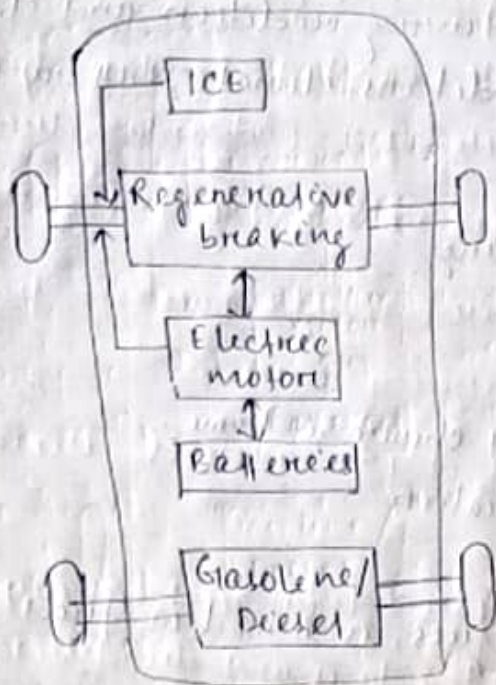 ICE
Regenerative
braking
Electric
motor
Batteries
Gasoline/
Diesel